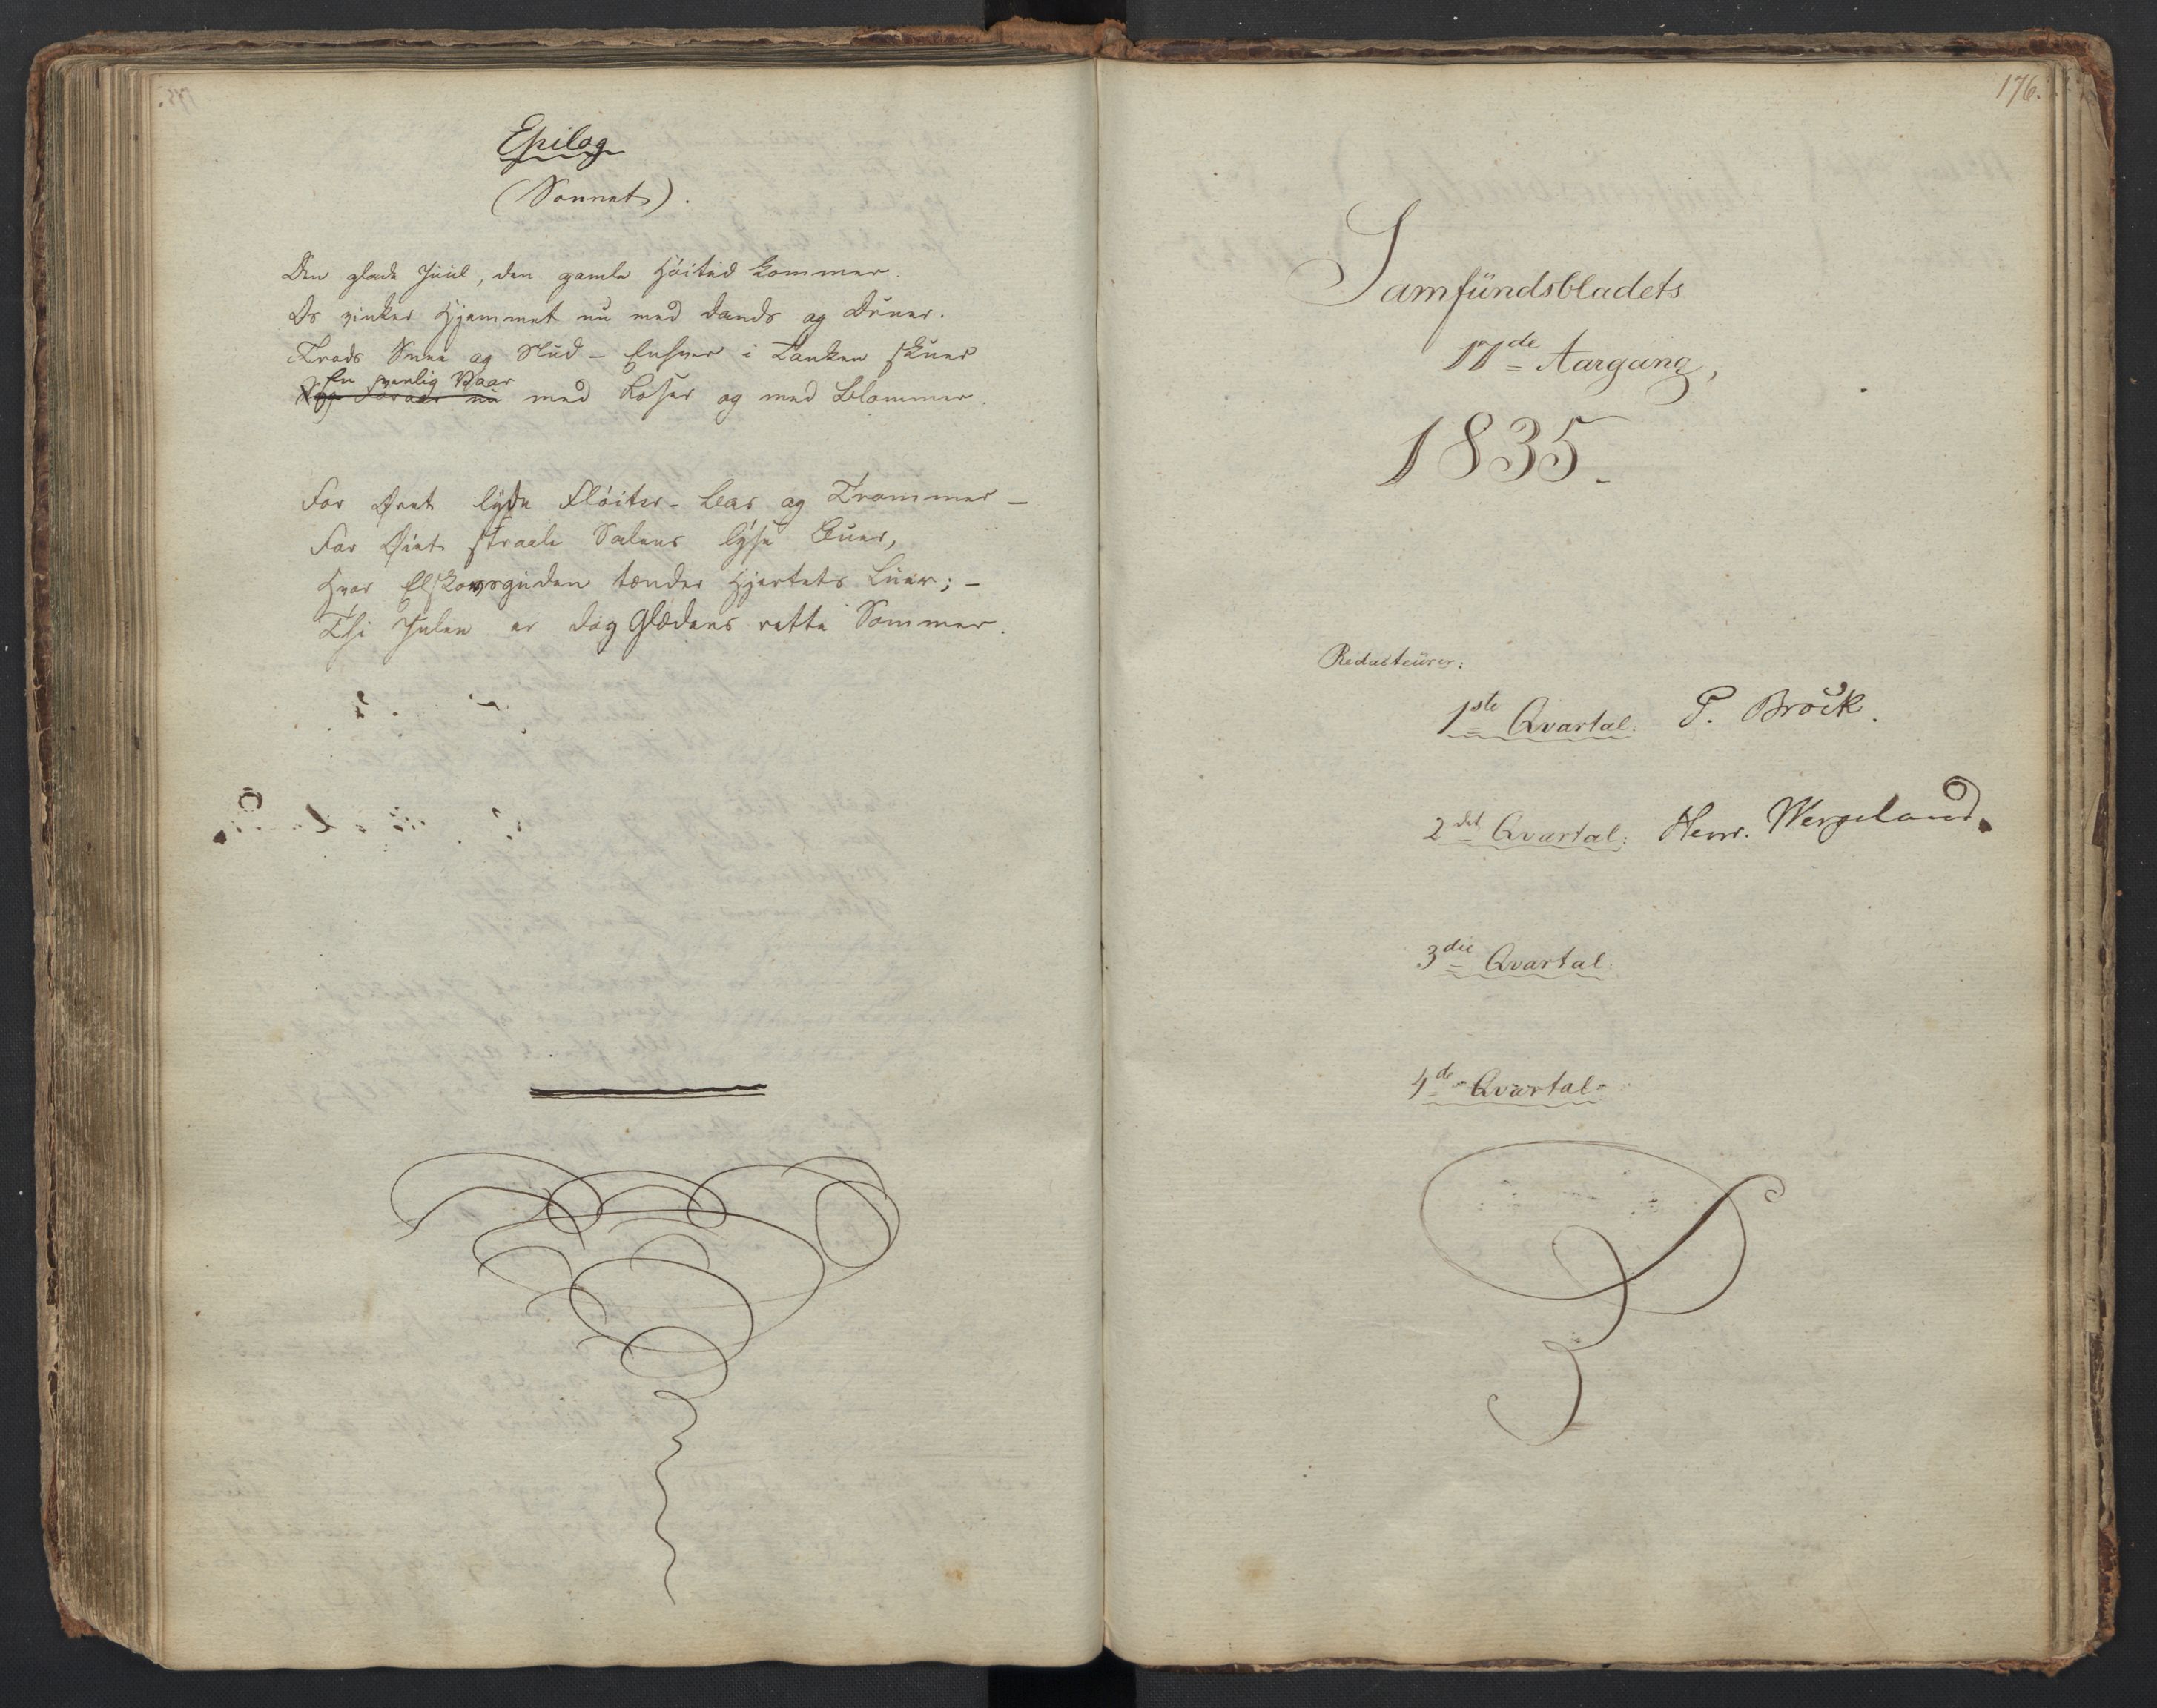 Epilog
(Sonnet).
Den glade Juul, den gamle Høitid kommer.
Os vinker Hjemmet nu med Dands og Druer.
Trods Snee og Slud – Enhver i Tanken skuer
En venlig Vaar
med Roser og med Blommer.
For Øret lyde Fløiter- Bas og Trommer –
For Øiet straale Salens lyse Buer,
Hvor Elskovsguden tænder Hjertets Luer; –
Thi Julen er dog Glædens rette Sommer.
176.
Samfundsbladets
17de Aargang,
1835.
Redacteurer:
1ste Qvartal: P. Brock.
2det Qvartal: Henr. Wergeland.
3die Qvartal.
4de Qvartal.